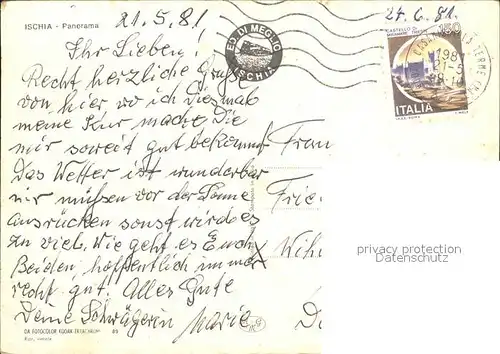 ISCHIA - Panorama
21.5.81
24.6.81.
Ihr Lieben!
Recht herzliche Grüße
von hier wo ich Diesmal
meine Kur mache. Die
mir soweit gut bekommt
Das Wetter ist wunderbar
wir müssen vor der Sonne
ausrücken sonst wird es
zu viel. Wie geht es Euch
Beiden, hoffentlich immer
recht gut. Alles Gute
Deine Schwägerin Marie
Frau
Frie
Wilh
D
ED. DI MEGLIO
ISCHIA
CASTELLO DI
150
ITALIA
TERME
198
privacy protection
Datenschutz
DA FOTOCOLOR KODAK EKTACHROME 89
Rip. vietata